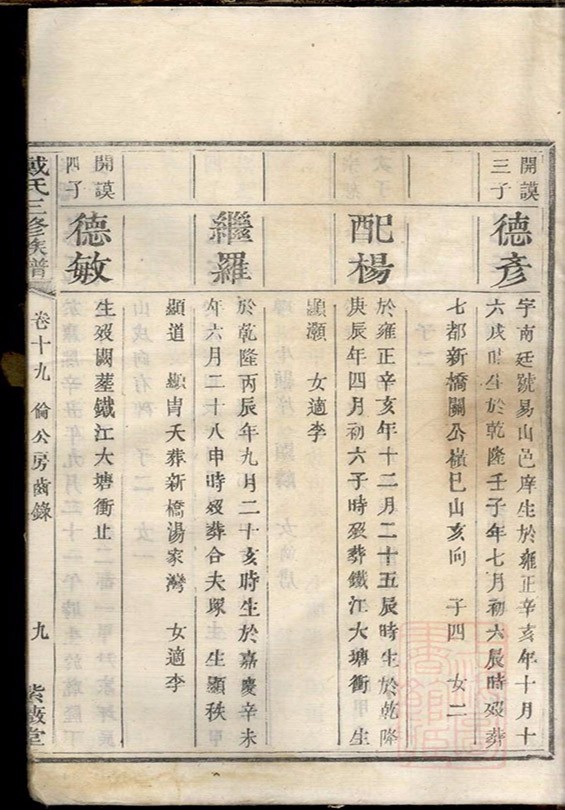 開謨
三子
德彥
字南廷號易山邑庠生於雍正辛亥年十月十
六戌時生於乾隆壬子年七月初六辰時歿葬
七都新橋關公嶺巳山亥向 子四 女二
配楊
於雍正辛亥年十二月二十五辰時生於乾隆
庚辰年四月初六子時歿葬鐵江大塘衝 生
顯灝 女適李
繼羅
於乾隆丙辰年九月二十亥時生於嘉慶辛未
年六月二十八申時歿葬合夫塚 生顯秩
顯道 顯胄夭葬新橋湯家灣 女適李
開謨
四子
德敏
生歿闕葬鐵江大塘衝止
戴氏三修族譜
卷十九 倫公房齒錄
九
紫薇堂